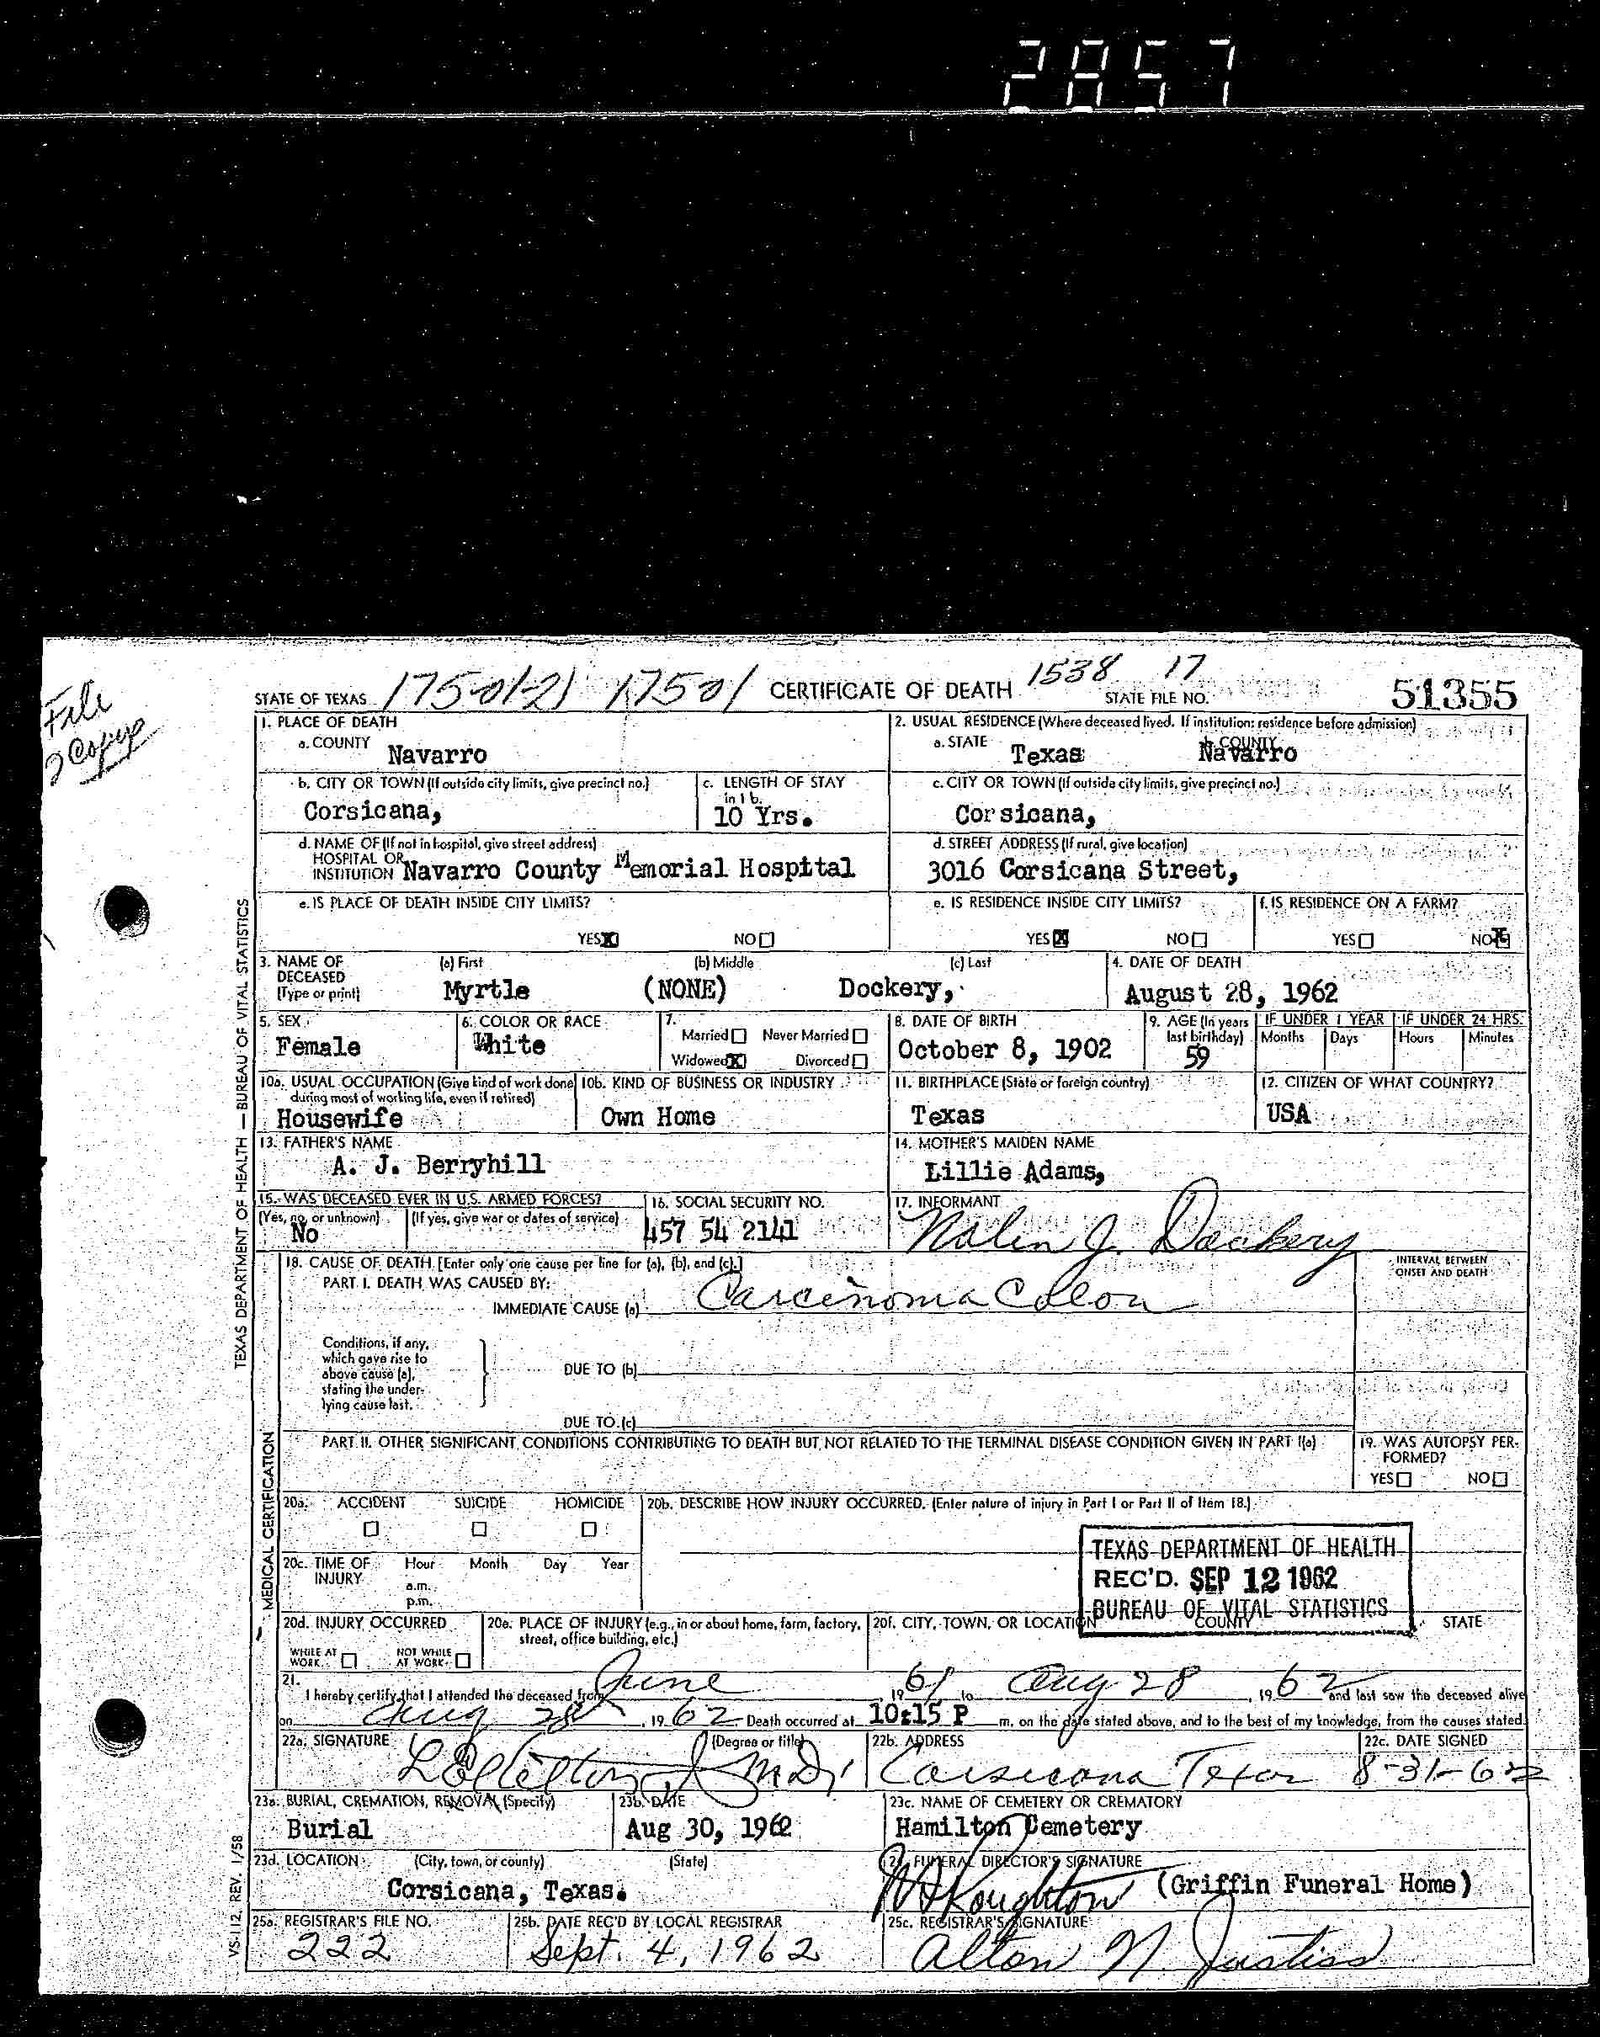 2857
File
2 Copys
STATE OF TEXAS 175-01-21 17501 CERTIFICATE OF DEATH 1538 17 STATE FILE NO. 51355
1. PLACE OF DEATH
a. COUNTY Navarro
2. USUAL RESIDENCE (Where deceased lived. If institution: residence before admission)
a. STATE Texas b. COUNTY Navarro
b. CITY OR TOWN (If outside city limits, give precinct no.) Corsicana,
c. LENGTH OF STAY in 1 b. 10 Yrs.
c. CITY OR TOWN (If outside city limits, give precinct no.) Corsicana,
d. NAME OF (If not in hospital, give street address)
HOSPITAL OR
INSTITUTION Navarro County Memorial Hospital
d. STREET ADDRESS (If rural, give location)
3016 Corsicana Street,
e. IS PLACE OF DEATH INSIDE CITY LIMITS?
YES X NO
e. IS RESIDENCE INSIDE CITY LIMITS?
YES X NO
f. IS RESIDENCE ON A FARM?
YES NO X
3. NAME OF DECEASED (Type or print)
(a) First Myrtle (b) Middle (NONE) (c) Last Dockery,
4. DATE OF DEATH
August 28, 1962
5. SEX
Female
6. COLOR OR RACE
White
7. Married Never Married
Widowed X Divorced
8. DATE OF BIRTH
October 8, 1902
9. AGE (In years last birthday)
59
IF UNDER 1 YEAR
Months Days
IF UNDER 24 HRS.
Hours Minutes
10a. USUAL OCCUPATION (Give kind of work done during most of working life, even if retired)
Housewife
10b. KIND OF BUSINESS OR INDUSTRY
Own Home
11. BIRTHPLACE (State or foreign country)
Texas
12. CITIZEN OF WHAT COUNTRY?
USA
13. FATHER'S NAME
A. J. Berryhill
14. MOTHER'S MAIDEN NAME
Lillie Adams,
15. WAS DECEASED EVER IN U.S. ARMED FORCES?
(Yes, no, or unknown) (If yes, give war or dates of service)
No
16. SOCIAL SECURITY NO.
457 54 2141
17. INFORMANT
Nolen J. Dockery
18. CAUSE OF DEATH [Enter only one cause per line for (a), (b), and (c).]
PART I. DEATH WAS CAUSED BY:
IMMEDIATE CAUSE (a) Carcinoma Colon
INTERVAL BETWEEN
ONSET AND DEATH
Conditions, if any,
which gave rise to
above cause (a),
stating the under-
lying cause last.
DUE TO (b)
DUE TO (c)
PART II. OTHER SIGNIFICANT CONDITIONS CONTRIBUTING TO DEATH BUT NOT RELATED TO THE TERMINAL DISEASE CONDITION GIVEN IN PART I(a)
19. WAS AUTOPSY PER-
FORMED?
YES NO
20a. ACCIDENT SUICIDE HOMICIDE
20b. DESCRIBE HOW INJURY OCCURRED. (Enter nature of injury in Part I or Part II of Item 18.)
20c. TIME OF INJURY Hour Month Day Year
a.m.
p.m.
TEXAS DEPARTMENT OF HEALTH
REC'D. SEP 12 1962
BUREAU OF VITAL STATISTICS
20d. INJURY OCCURRED
WHILE AT WORK NOT WHILE AT WORK
20e. PLACE OF INJURY (e.g., in or about home, farm, factory, street, office building, etc.)
20f. CITY, TOWN, OR LOCATION COUNTY STATE
21.
I hereby certify that I attended the deceased from June, 1961 to Aug 28, 1962 and last saw the deceased alive
on Aug 28, 1962. Death occurred at 10:15 P m. on the date stated above, and to the best of my knowledge, from the causes stated.
22a. SIGNATURE (Degree or title)
M.D.
22b. ADDRESS
Corsicana Texas
22c. DATE SIGNED
8-31-62
23a. BURIAL, CREMATION, REMOVAL (Specify)
Burial
23b. DATE
Aug 30, 1962
23c. NAME OF CEMETERY OR CREMATORY
Hamilton Cemetery
23d. LOCATION (City, town, or county) (State)
Corsicana, Texas.
24. FUNERAL DIRECTOR'S SIGNATURE
(Griffin Funeral Home)
25a. REGISTRAR'S FILE NO.
222
25b. DATE REC'D BY LOCAL REGISTRAR
Sept. 4, 1962
25c. REGISTRAR'S SIGNATURE
Alton N. Justiss
TEXAS DEPARTMENT OF HEALTH — BUREAU OF VITAL STATISTICS
MEDICAL CERTIFICATION
VS-112, REV. 1/58